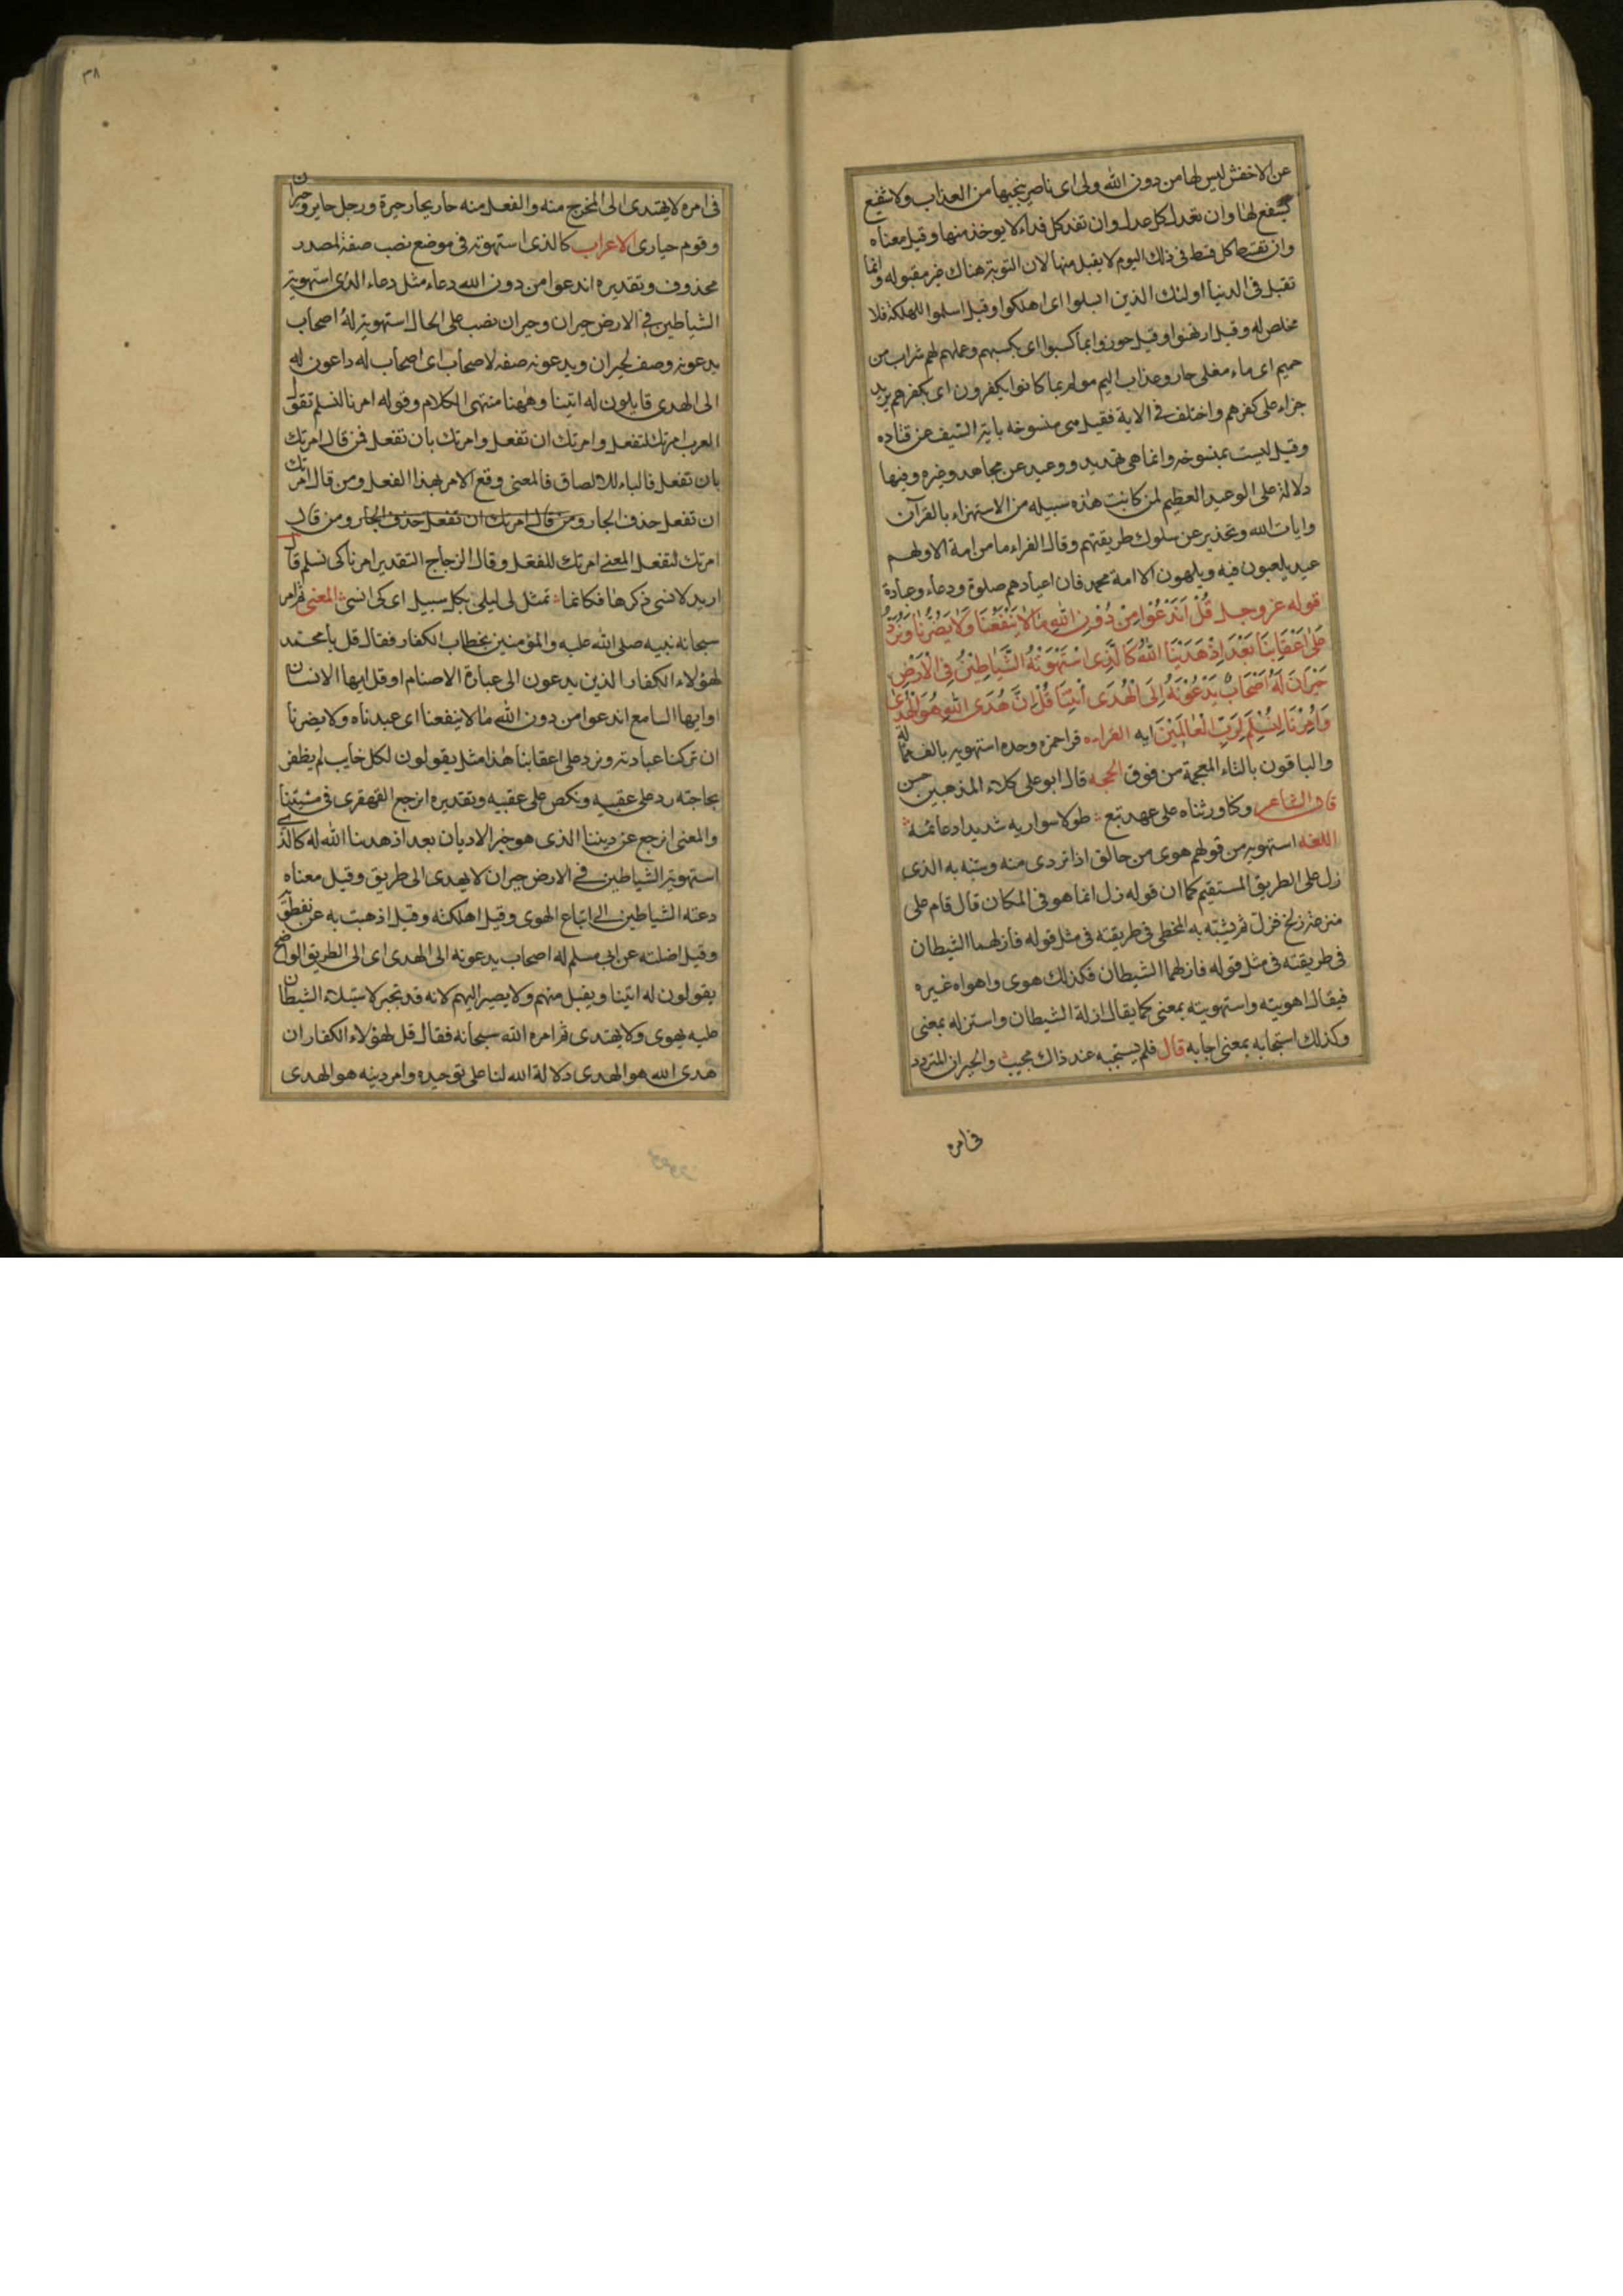 عن الاخفش ليس لها من دون الله ولى اى ناصر ينجيها من العذاب ولا شفيع
يشفع لها وان تعدل كل عدل وان تفد كل فداء لا يوخذ منها وقيل معناه
وان تقسط كل قسط فى ذلك اليوم لا يقبل منها لان التوبة هناك غير مقبوله وانما
تقبل فى الدنيا اولئك الذين ابسلوا اى اهلكوا وقيل اسلموا للهلكة فلا
مخلص له وقيل ارتهنوا وقيل جوزوا بما كسبوا اى بكسبهم وعملهم لهم شراب من
حميم اى ماء مغلى حار وعذاب اليم مولم بما كانوا يكفرون اى بكفرهم يريد
جزاء على كفرهم واختلف فى الاية فقيل هى منسوخة باية السيف عن قتاده
وقيل ليست بمنسوخه وانما هى تهديد ووعيد عن مجاهد وغيره وفيها
دلالة على الوعيد العظيم لمن كانت هذه سبيله من الاستهزاء بالقرآن
وايات الله وتحذير عن سلوك طريقتهم وقال الفراء ما من امة الا ولهم
عيد يلعبون فيه ويلهون الا امة محمد فان اعيادهم صلوة ودعاء وعبادة
قوله عز وجل قُلْ اَنَدْعُوا مِنْ دُوْنِ اللهِ مَا لَا يَنْفَعُنَا وَلَا يَضُرُّنَا وَنُرَدُّ
عَلٰى اَعْقَابِنَا بَعْدَ اِذْ هَدَيٰنَا اللهُ كَالَّذِى اسْتَهْوَتْهُ الشَّيَاطِيْنُ فِى الْاَرْضِ
حَيْرَانَ لَهُ اَصْحَابٌ يَدْعُوْنَهُ اِلَى الْهُدَى ائْتِنَا قُلْ اِنَّ هُدَى اللهِ هُوَ الْهُدٰى
وَاُمِرْنَا لِنُسْلِمَ لِرَبِّ الْعَالَمِيْنَ ايه القراءه قرا حمزه وحده استهويه بالف ممالة
والباقون بالتاء المعجمة من فوق الحجه قال ابو على كلاء المذهبين حسن
قال الشاعر وكنا ورثناه على عهد تبع طولا سواريه شديدا دعائمه
اللغه استهويه من قولهم هوى من حالق اذا تردى منه ويشبه به الذى
زل على الطريق المستقيم كما ان قوله زل انما هو فى المكان قال قام على
منزعة زلخ فزل ثم يشبه به المخطى فى طريقته فى مثل قوله فازلهما الشيطان
فى طريقته فى مثل قوله فازلهما الشيطان فكذلك هوى واهواه غيره
فيقال اهويته واستهويته بمعنى كما يقال ازلة الشيطان واستزله بمعنى
وكذلك استجابه بمعنى اجابه قال فلم يستجبه عند ذاك مجيب والحيران المتردد
فى امره
٣٨
فى امره لا يهتدى الى المخرج منه والفعل منه حار يحار حيرة ورجل حاير وحيران
وقوم حيارى الاعراب كالذى استهوته فى موضع نصب صفة لمصدر
محذوف وتقديره اندعوا من دون الله دعاء مثل دعاء الذى استهويه
الشياطين فى الارض حيران وحيران نصب على الحال استهويه له اصحاب
يدعونه وصف لحيران ويدعونه صفه لاصحاب اى اصحاب له داعون له
الى الهدى قايلون له ائتنا وههنا منتهى الكلام وقوله امرنا لنسلم تقول
العرب امرتك لتفعل وامرتك ان تفعل وامرتك بان تفعل فمن قال امرتك
بان تفعل فالباء للالصاق فالمعنى وقع الامر بهذا الفعل ومن قال امرتك
ان تفعل حذف الجار ومن قال امرتك ان تفعل حذف الجار ومن قال
امرتك لتفعل المعنى امرتك للفعل وقال الزجاج التقدير امرنا كى نسلم قال
اريد لانسى ذكرها فكانما تمثل لى ليلى بكل سبيل اى كى انسى المعنى ثم امر
سبحانه نبيه صلى الله عليه والمؤمنين بخطاب الكفار فقال قل يا محمد
لهؤلاء الكفار الذين يدعون الى عبادة الاصنام او قل ايها الانسان
او ايها السامع اندعوا من دون الله ما لا ينفعنا اى عبدناه ولا يضرنا
ان تركنا عبادته ونرد على اعقابنا هذا مثل يقولون لكل خايب لم يظفر
بحاجته رد على عقبيه ونكص على عقبيه وتقديره انرجع القهقرى فى مشيتنا
والمعنى انرجع عن ديننا الذى هو خير الاديان بعد اذ هدينا الله له كالذى
استهويه الشياطين فى الارض حيران لا يهدى الى طريق وقيل معناه
دعته الشياطين الى اتباع الهوى وقيل اهلكته وقيل اذهبت به عن نفطويه
وقيل اضلته عن ابى مسلم له اصحاب يدعونه الى الهدى اى الى الطريق الواضح
يقولون له ائتنا ويقبل منهم ولا يصير اليهم لانه قد تحير لاستيلاء الشيطان
عليه يهوى ولا يهتدى ثم امره الله سبحانه فقال قل لهؤلاء الكفار ان
هدى الله هو الهدى دلالة الله لنا على توحيده وامر دينه هو الهدى